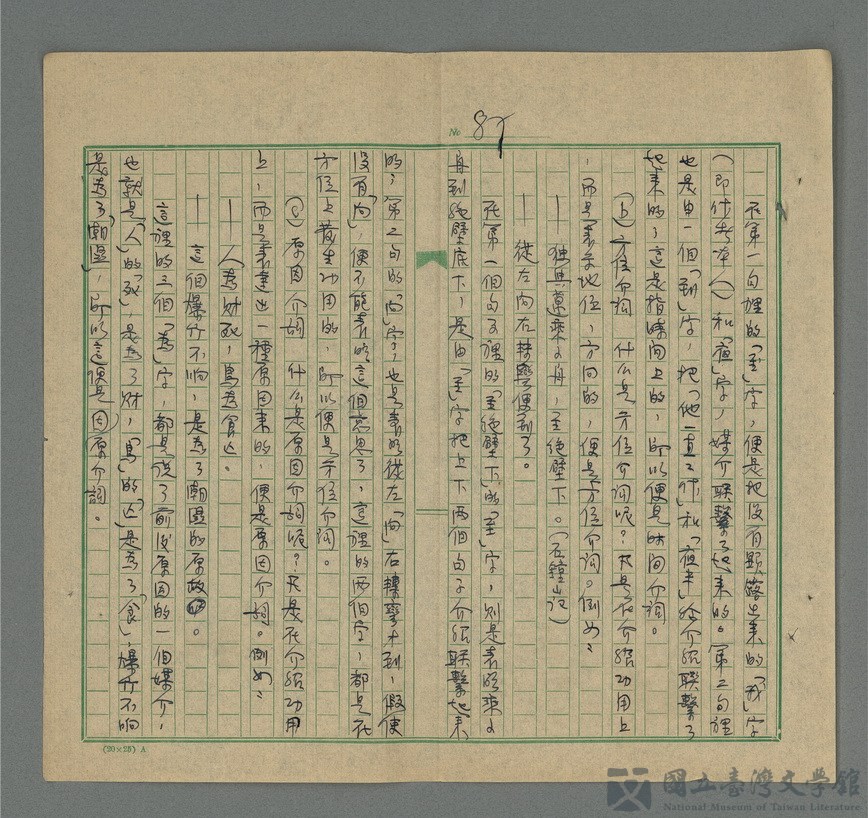 No 87
在第一句裡的「至」字，便是把沒有顯露出来的「我」字
（即作者本人）和「夜」字，媒介联繫了起来的。第二句裡
也是由一個「到」字，把「他一直工作」和「夜半」给介紹联繫了
起来的，这是指時间上的，所以便是时间介詞。
(b)方位介詞 什么是方位介词呢？凡是在介紹功用上
，而是表示地位，方向的，便是方位介词。例如：
——独與蔂乘小舟，至绝壁下。（石鐘山记）
——從左向右转彎便到了。
在第一個句子裡的「至绝壁下」的「至」字，则是表明乘小
舟到絶壁底下，是由「至」字把上下两個句子介紹联繫起来
的；第二句的「向」字，也是表明從左「向」右轉彎才到，假使
没有「向」，便不能表明這個意思了，這裡的两個字，都是在
方位上發生功用的，所以便是方位介词。
(c)原因介詞 什么是原因介詞呢？凡是在介紹功用
上，而是表達出一種原因来的，便是原因介詞。例如：
——人為财死，鳥為食亡。
——這個爆竹不响，是為了潮溫的原故。
這裡的三個「為」字，都是说了前後原因的一個媒介，
也就是「人」的「死」，是為了财，「鳥」的「亡」是為了「食」，爆竹不响
是為了「潮溫」，所以這便是因原介詞。
(20×25) A
國立臺灣文學館
National Museum of Taiwan Literature